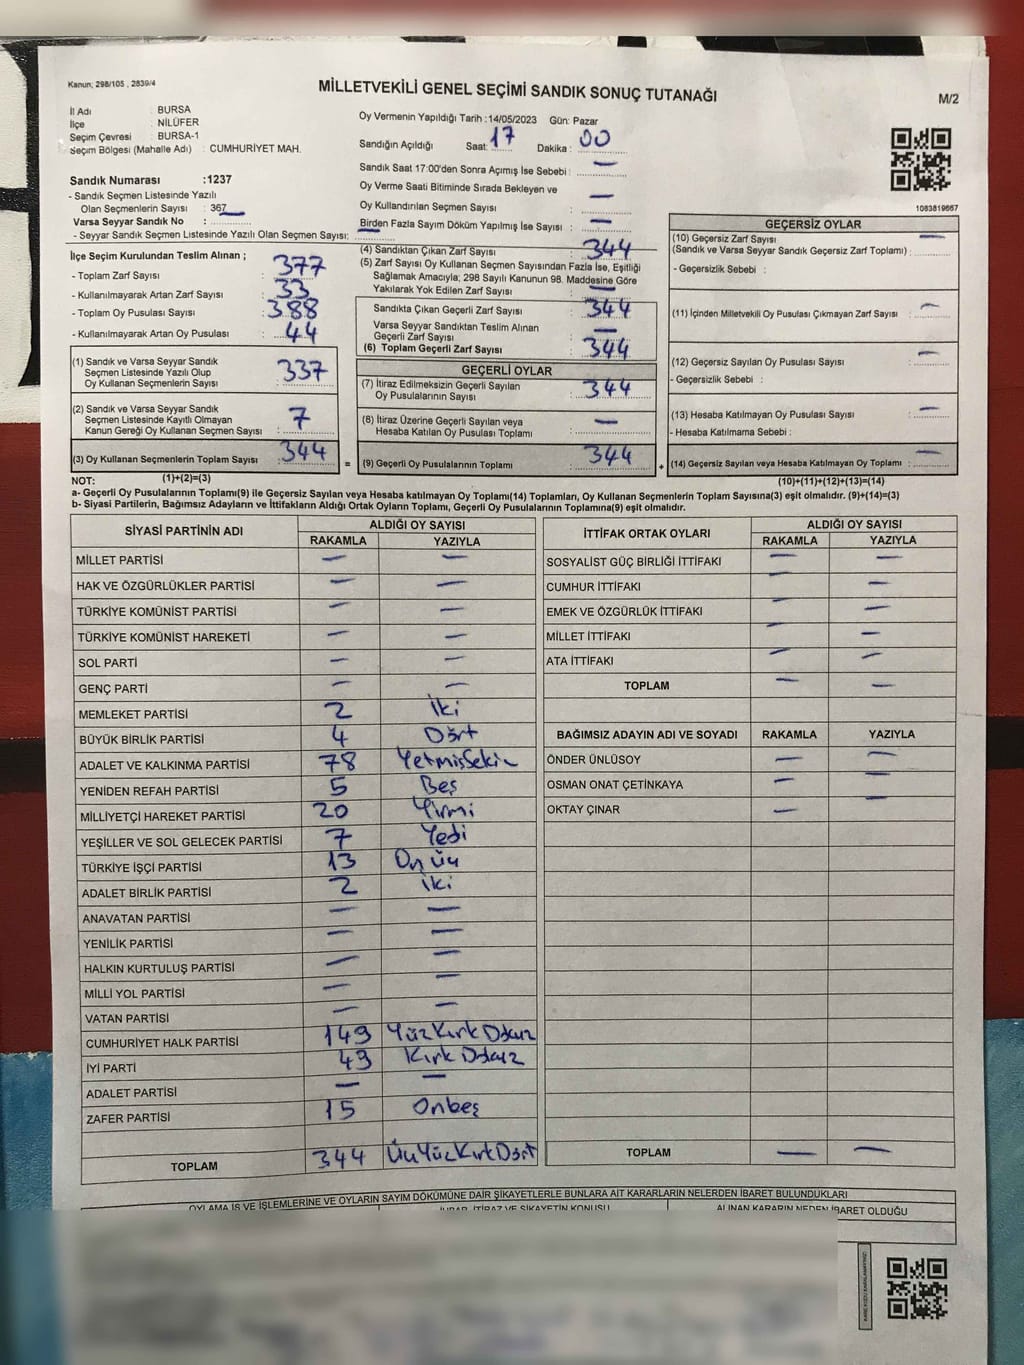 Kanun; 298/105 , 2839/4
MİLLETVEKİLİ GENEL SEÇİMİ SANDIK SONUÇ TUTANAĞI
M/2
İl Adı : BURSA
İlçe : NİLÜFER
Seçim Çevresi : BURSA-1
Seçim Bölgesi (Mahalle Adı) : CUMHURİYET MAH.
Sandık Numarası :1237
- Sandık Seçmen Listesinde Yazılı
Olan Seçmenlerin Sayısı : 367
Varsa Seyyar Sandık No :
- Seyyar Sandık Seçmen Listesinde Yazılı Olan Seçmen Sayısı:
Oy Vermenin Yapıldığı Tarih :14/05/2023 Gün: Pazar
Sandığın Açıldığı Saat: 17 Dakika : 00
Sandık Saat 17:00'den Sonra Açımış İse Sebebi : —
Oy Verme Saati Bitiminde Sırada Bekleyen ve
Oy Kullandırılan Seçmen Sayısı : —
Birden Fazla Sayım Döküm Yapılmış İse Sayısı : —
1083819667
İlçe Seçim Kurulundan Teslim Alınan ;
- Toplam Zarf Sayısı : 377
- Kullanılmayarak Artan Zarf Sayısı : 33
- Toplam Oy Pusulası Sayısı : 388
- Kullanılmayarak Artan Oy Pusulası : 44
(1) Sandık ve Varsa Seyyar Sandık
Seçmen Listesinde Yazılı Olup
Oy Kullanan Seçmenlerin Sayısı : 337
(2) Sandık ve Varsa Seyyar Sandık
Seçmen Listesinde Kayıtlı Olmayan
Kanun Gereği Oy Kullanan Seçmen Sayısı : 7
(3) Oy Kullanan Seçmenlerin Toplam Sayısı : 344
(1)+(2)=(3)
(4) Sandıktan Çıkan Zarf Sayısı : 344
(5) Zarf Sayısı Oy Kullanan Seçmen Sayısından Fazla İse, Eşitliği
Sağlamak Amacıyla; 298 Sayılı Kanunun 98. Maddesine Göre
Yakılarak Yok Edilen Zarf Sayısı : —
Sandıkta Çıkan Geçerli Zarf Sayısı : 344
Varsa Seyyar Sandıktan Teslim Alınan
Geçerli Zarf Sayısı : —
(6) Toplam Geçerli Zarf Sayısı : 344
GEÇERLİ OYLAR
(7) İtiraz Edilmeksizin Geçerli Sayılan
Oy Pusulalarının Sayısı : 344
(8) İtiraz Üzerine Geçerli Sayılan veya
Hesaba Katılan Oy Pusulası Toplamı : —
= (9) Geçerli Oy Pusulalarının Toplamı : 344
GEÇERSİZ OYLAR
(10) Geçersiz Zarf Sayısı —
(Sandık ve Varsa Seyyar Sandık Geçersiz Zarf Toplamı) :
- Geçersizlik Sebebi :
(11) İçinden Milletvekili Oy Pusulası Çıkmayan Zarf Sayısı : —
(12) Geçersiz Sayılan Oy Pusulası Sayısı : —
- Geçersizlik Sebebi :
(13) Hesaba Katılmayan Oy Pusulası Sayısı : —
- Hesaba Katılmama Sebebi :
+ (14) Geçersiz Sayılan veya Hesaba Katılmayan Oy Toplamı : —
(10)+(11)+(12)+(13)=(14)
NOT:
a- Geçerli Oy Pusulalarının Toplamı(9) ile Geçersiz Sayılan veya Hesaba katılmayan Oy Toplamı(14) Toplamları, Oy Kullanan Seçmenlerin Toplam Sayısına(3) eşit olmalıdır. (9)+(14)=(3)
b- Siyasi Partilerin, Bağımsız Adayların ve İttifakların Aldığı Ortak Oyların Toplamı, Geçerli Oy Pusulalarının Toplamına(9) eşit olmalıdır.
SİYASİ PARTİNİN ADI ALDIĞI OY SAYISI
RAKAMLA YAZIYLA
MİLLET PARTİSİ — —
HAK VE ÖZGÜRLÜKLER PARTİSİ — —
TÜRKİYE KOMÜNİST PARTİSİ — —
TÜRKİYE KOMÜNİST HAREKETİ — —
SOL PARTİ — —
GENÇ PARTİ — —
MEMLEKET PARTİSİ 2 İki
BÜYÜK BİRLİK PARTİSİ 4 Dört
ADALET VE KALKINMA PARTİSİ 78 YetmişSekiz
YENİDEN REFAH PARTİSİ 5 Beş
MİLLİYETÇİ HAREKET PARTİSİ 20 Yirmi
YEŞİLLER VE SOL GELECEK PARTİSİ 7 Yedi
TÜRKİYE İŞÇİ PARTİSİ 13 On üç
ADALET BİRLİK PARTİSİ 2 İki
ANAVATAN PARTİSİ — —
YENİLİK PARTİSİ — —
HALKIN KURTULUŞ PARTİSİ — —
MİLLİ YOL PARTİSİ — —
VATAN PARTİSİ — —
CUMHURİYET HALK PARTİSİ 149 YüzKırk Dokuz
İYİ PARTİ 49 Kırk Dokuz
ADALET PARTİSİ — —
ZAFER PARTİSİ 15 Onbeş
TOPLAM 344 ÜçYüzKırkDört
İTTİFAK ORTAK OYLARI ALDIĞI OY SAYISI
RAKAMLA YAZIYLA
SOSYALİST GÜÇ BİRLİĞİ İTTİFAKI — —
CUMHUR İTTİFAKI — —
EMEK VE ÖZGÜRLÜK İTTİFAKI — —
MİLLET İTTİFAKI — —
ATA İTTİFAKI — —
TOPLAM — —
BAĞIMSIZ ADAYIN ADI VE SOYADI RAKAMLA YAZIYLA
ÖNDER ÜNLÜSOY — —
OSMAN ONAT ÇETİNKAYA — —
OKTAY ÇINAR —
TOPLAM — —
OYLAMA İŞ VE İŞLEMLERİNE VE OYLARIN SAYIM DÖKÜMÜNE DAİR ŞİKAYETLERLE BUNLARA AİT KARARLARIN NELERDEN İBARET BULUNDUKLARI
İTİRAZ VE ŞİKAYETİN KONUSU
ALINAN KARARIN NEDEN İBARET OLDUĞU